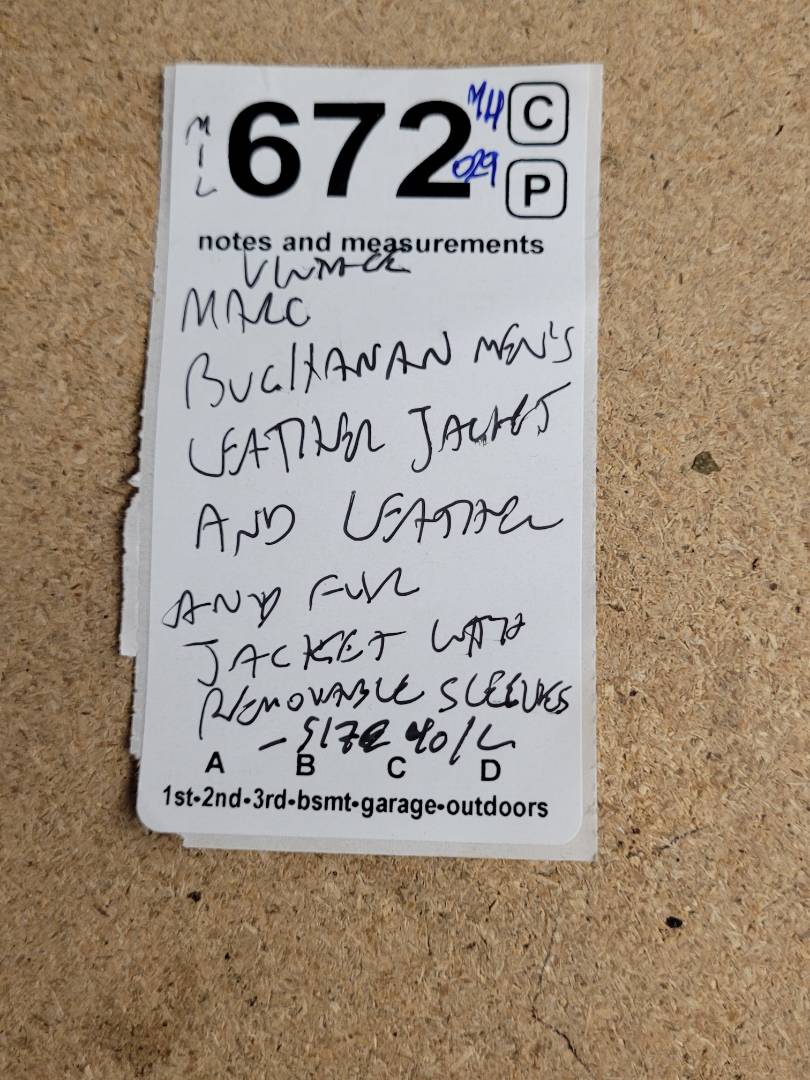 MIL 672 MH C
029 P
notes and measurements
VINTAGE
MARC
BUCHANAN MEN'S
LEATHER JACKET
AND LEATHER
AND FUR
JACKET WITH
REMOVABLE SLEEVES
- SIZE 40/L
A B C D
1st•2nd•3rd•bsmt•garage•outdoors